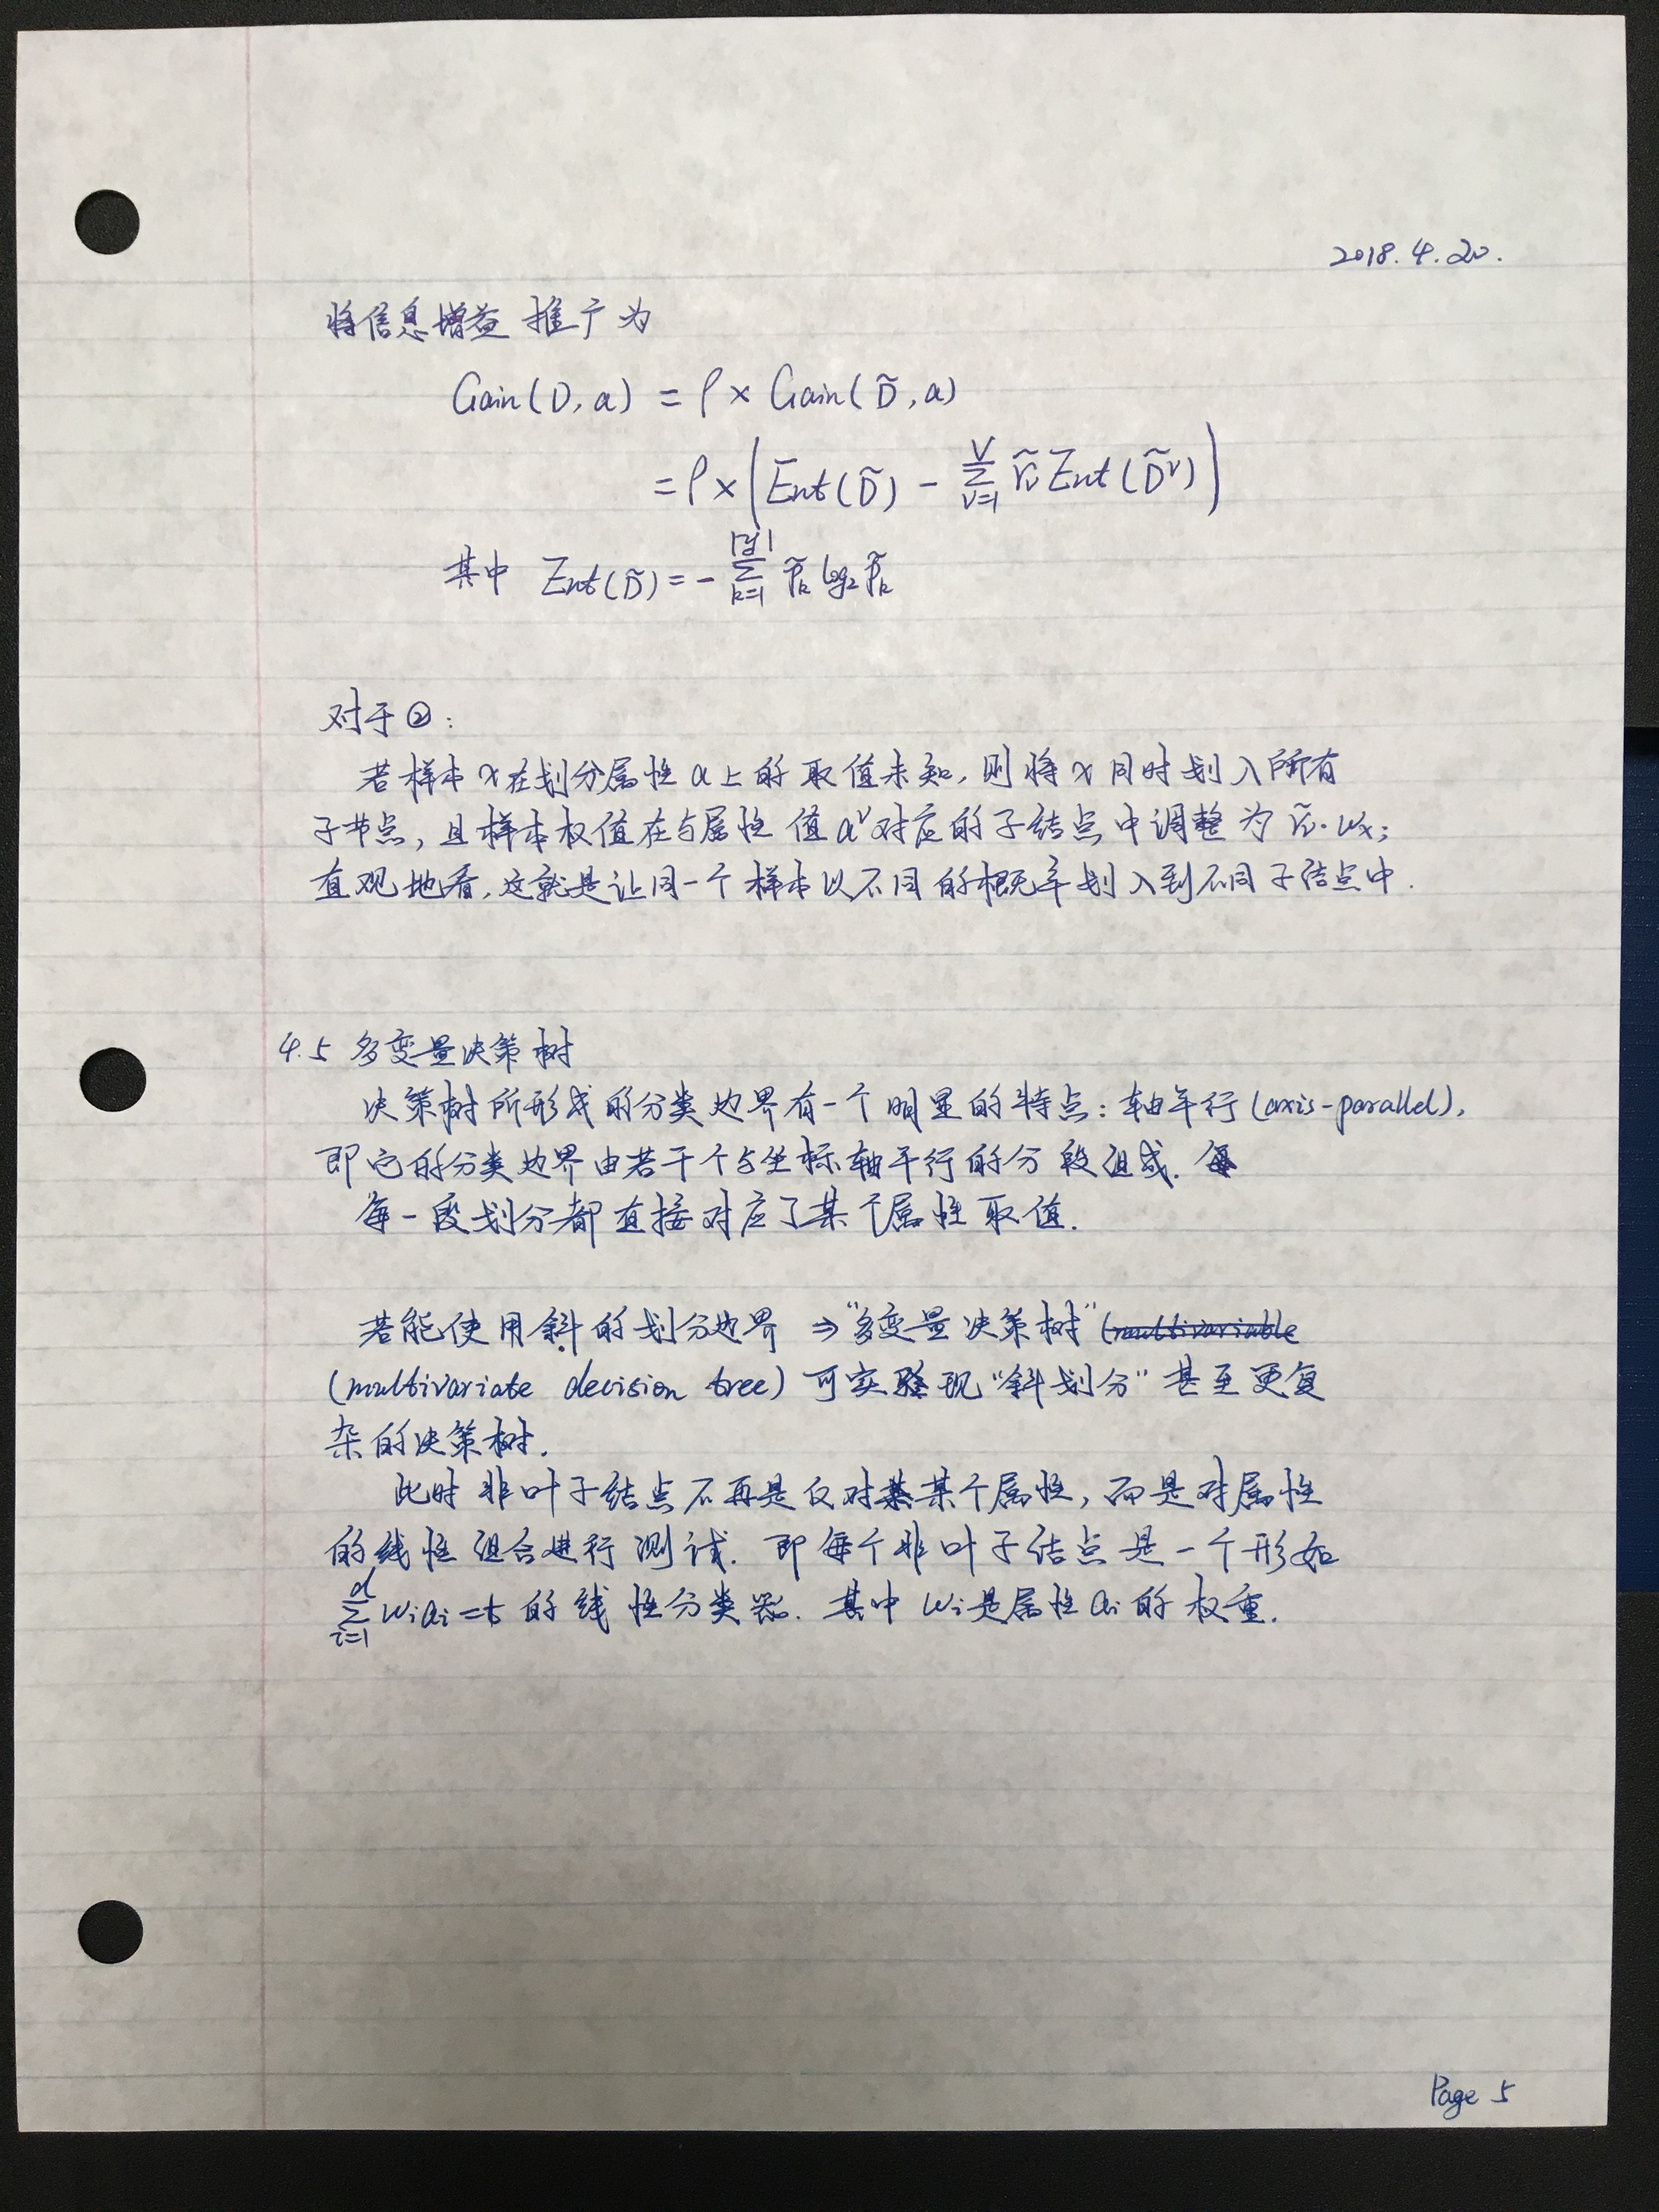 2018.4.20.
将信息增益推广为
Gain(D, a) = ρ × Gain(D̃, a)
= ρ × (Ent(D̃) - ∑_{v=1}^{V} r̃_v Ent(D̃^v))
其中 Ent(D̃) = - ∑_{k=1}^{|y|} p̃_k log₂ p̃_k
对于②:
若样本x在划分属性a上的取值未知,则将x同时划入所有
子节点,且样本权值在与属性值a^v对应的子结点中调整为 r̃_v·w_x;
直观地看,这就是让同一个样本以不同的概率划入到不同子结点中.
4.5 多变量决策树
决策树所形成的分类边界有一个明显的特点:轴平行(axis-parallel),
即它的分类边界由若干个与坐标轴平行的分段组成.
每一段划分都直接对应了某个属性取值.
若能使用斜的划分边界 ⇒ "多变量决策树" (multivariable
(multivariate decision tree) 可实现"斜划分"甚至更复
杂的决策树.
此时非叶子结点不再是仅对某个属性,而是对属性
的线性组合进行测试. 即每个非叶子结点是一个形如
∑_{i=1}^{d} w_i a_i = t 的线性分类器. 其中 w_i 是属性 a_i 的权重.
Page 5